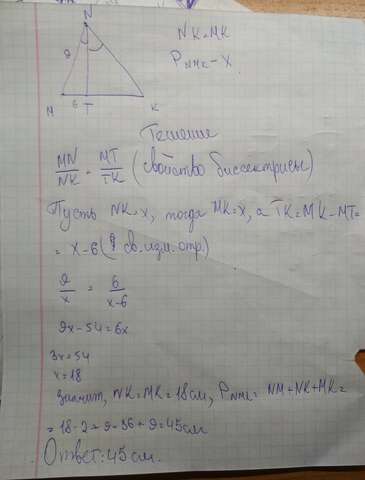 N
NK=MK
9
P NMK - X
M 6 T K
Решение
MN/NK = MT/TK (свойство биссектрисы)
Пусть NK=x, тогда MK=x, а TK=MK-MT=
= x-6 ( св. изм. отр.)
9/x = 6/x-6
9x-54=6x
3x=54
x=18
Значит, NK=MK=18см, P NMK= NM+NK+MK=
= 18·2+9=36+9=45см
Ответ: 45 см.